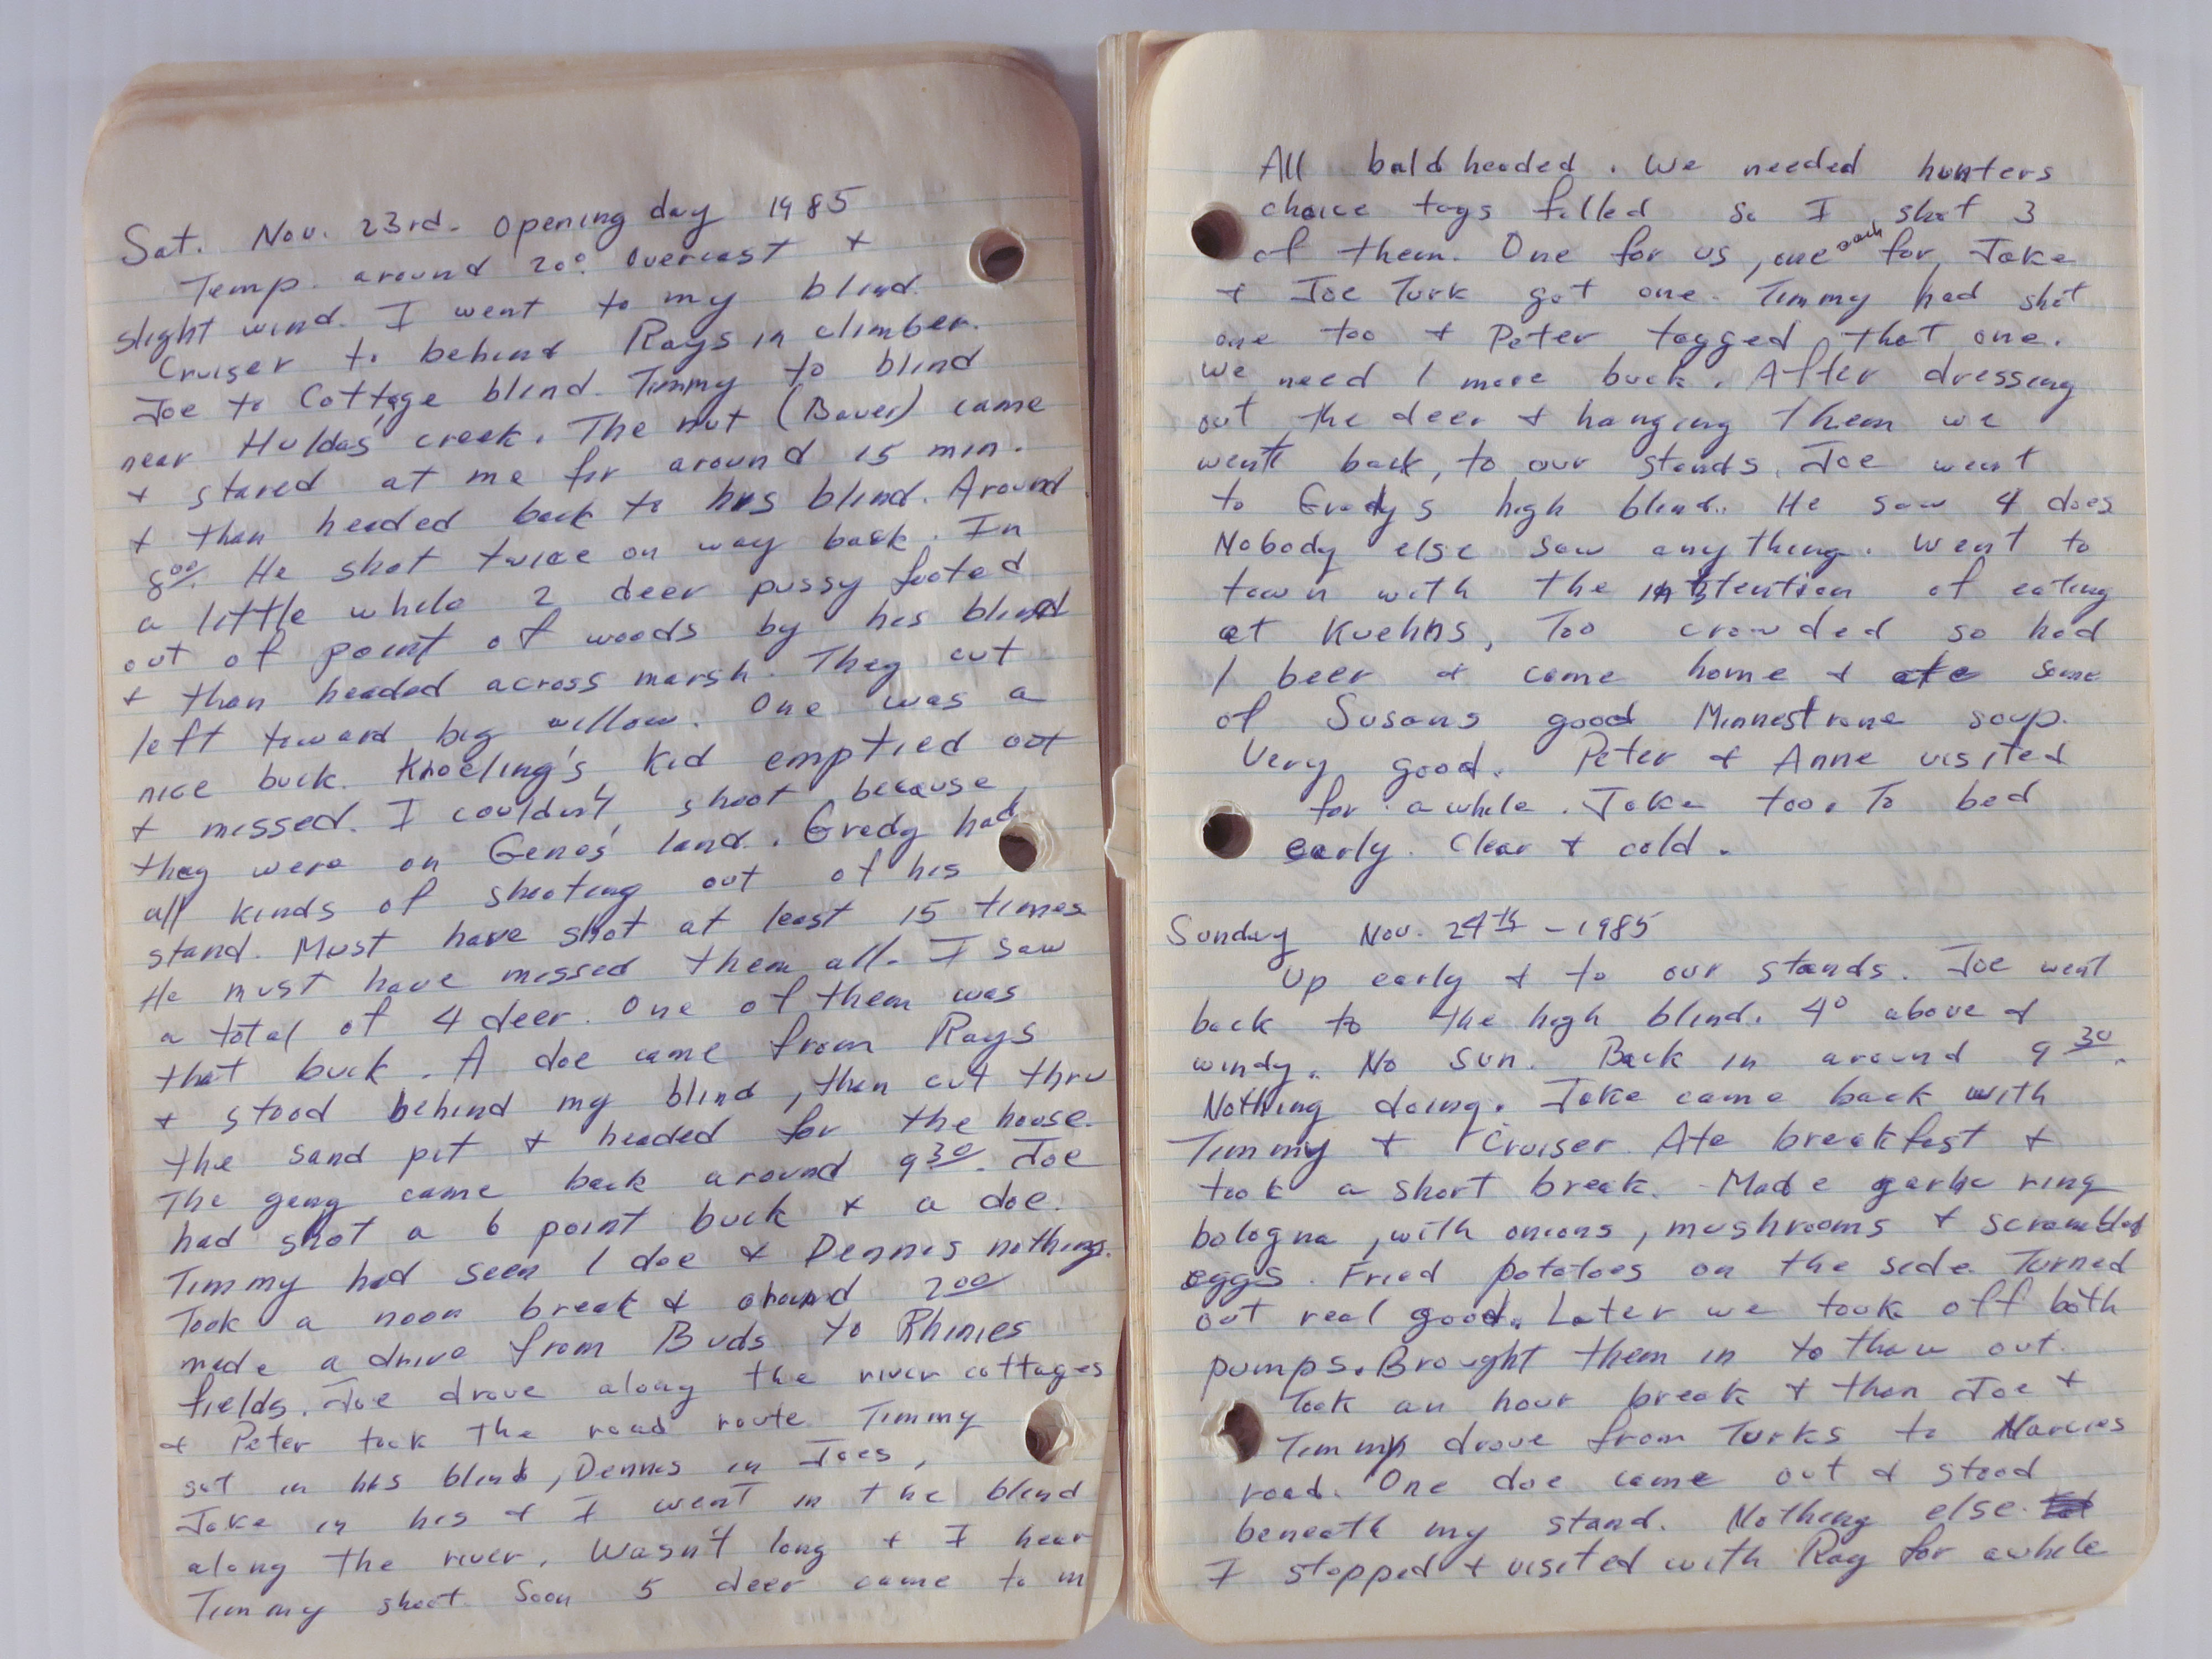 Sat. Nov. 23rd. Opening day 1985
Temp. around 20°. Overcast +
slight wind. I went to my blind.
Cruiser to behind Rays in climber.
Joe to Cottage blind. Timmy to blind
near Huldas' creek. The nut (Bauer) came
+ stared at me for around 15 min.
+ then headed back to his blind. Around
8⁰⁰. He shot twice on way back. In
a little while 2 deer pussy footed
out of point of woods by his blind
+ then headed across marsh. They cut
left toward big willow. One was a
nice buck. Knoeling's kid emptied out
+ missed. I couldn't shoot because
they were on Genes' land. Gredy had
all kinds of shooting out of his
stand. Must have shot at least 15 times
He must have missed them all. I saw
a total of 4 deer. One of them was
that buck. A doe came from Rays
+ stood behind my blind, then cut thru
the sand pit + headed for the house.
The gang came back around 9³⁰. Joe
had shot a 6 point buck + a doe.
Timmy had seen 1 doe + Dennis nothing.
Took a noon break + around 2⁰⁰
made a drive from Buds to Rhinies
fields. Joe drove along the river cottages
+ Peter took the road route. Timmy
sat in his blind, Dennis in Joes,
Jake in his + I went in the blind
along the river. Wasn't long + I hear
Timmy shoot. Soon 5 deer came to m
All bald headed. We needed hunters
choice tags filled so I shot 3
of them. One for us, one each for Jake
+ Joe Turk got one. Timmy had shot
one too + Peter tagged that one.
We need 1 more buck. After dressing
out the deer + hanging them we
went back, to our stands. Joe went
to Gredys high blind. He saw 4 does
Nobody else saw anything. Went to
town with the intention of eating
at Kuehns, Too crowded so had
1 beer + came home + ate some
of Susans good Minnestrone soup.
Very good. Peter + Anne visited
for awhile. Jake too. To bed
early. Clear + cold.
Sunday Nov. 24th - 1985
Up early + to our stands. Joe went
back to the high blind. 4° above +
windy. No sun. Back in around 9³⁰.
Nothing doing. Jake came back with
Timmy + Cruiser. Ate breakfast +
took a short break. Made garlic ring
bologna, with onions, mushrooms + scrambled
eggs. Fried potatoes on the side. Turned
out real good. Later we took off both
pumps. Brought them in to thaw out.
Took an hour break + then Joe +
Timmy drove from Turks to Marcies
road. One doe came out + stood
beneath my stand. Nothing else.
I stopped + visited with Ray for awhile